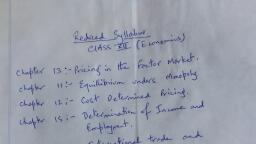 Reduced Syllabus
CLASS XII (Economics)
Chapter 13:- Pricing in the Factor Market.
Chapter 11:- Equilibrium under Monopoly
Chapter 12:- Cost Determined Pricing.
Chapter 15:- Determination of Income and
Employment.
trade and